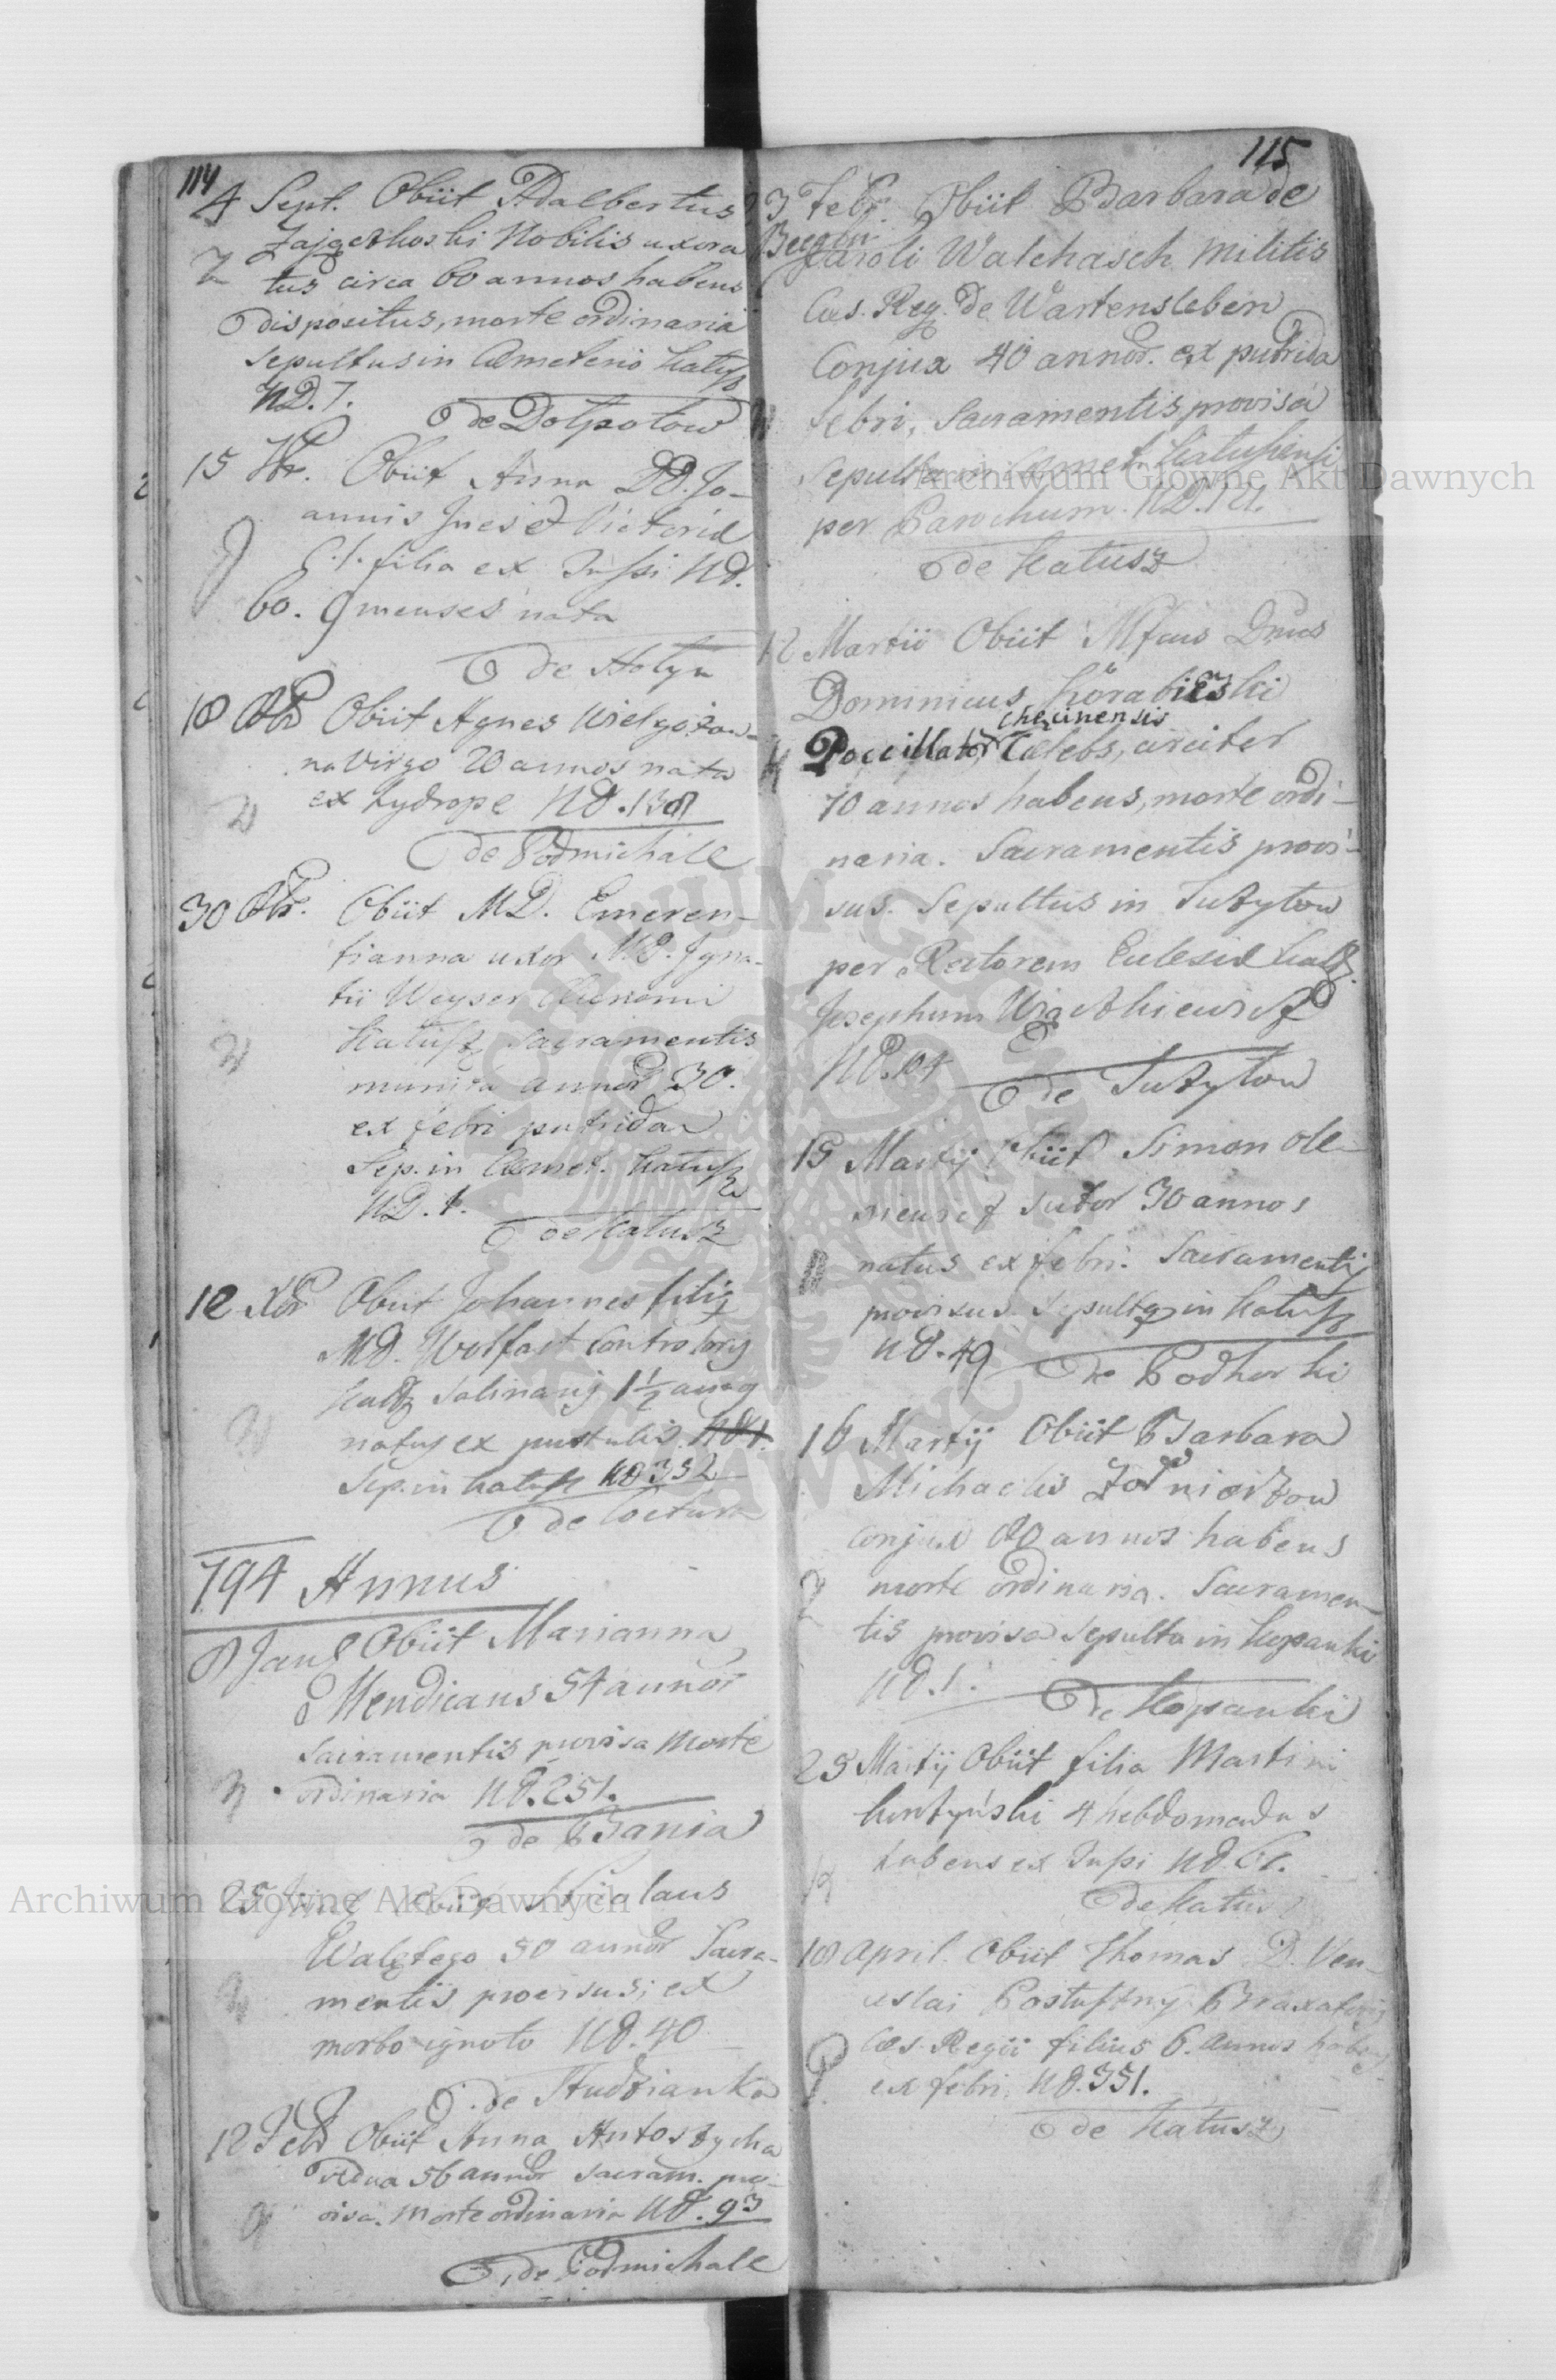 114
4 Sept. Obiit Adalbertus
Zajączkoski Nobilis uxora
tus circa 60 annos habens
dispositus, morte ordinaria
sepultus in Cæmeterio Katusz
ND. 7.
de Dolpotow
15 Obiit Anna DD. Jo-
annis Jnes et Victoriæ
C. l. filia ex Tussi Nd.
60. 9 menses nata
de Holyn
18 Obiit Agnes Wielgożow-
na Virgo 20 annos nata
ex hydrope Nd. 138
de Podmichale
30 Obiit MD. Emeren-
tianna uxor M.D. Igna-
tii Weyser
Katusz Sacramentis
munita annor 30.
ex febri putrida
Sep. in Cæmet. Katusz
ND. 1.
de Katusz
12 Xbr Obiit Johannes filig
MD. Wolfart Controlory
Salinarig 1 1/2 annog
natus ex pustulis Nd 1.
Sep. in Katusz Nd 352
de
794 Annus
8 Jan Obiit Marianna
Mendicans 54 annor
Sacramentis provisa Morte
ordinaria Nd. 251.
de Bania
25 Obiit Nicolaus
Walętego 50 annor Sacra-
mentis provisus; ex
morbo ignoto Nd. 40
de Studzianka
12 Febr Obiit Anna Antoszycha
vidua 56 annor Sacram. pro-
visa. Morte ordinaria Nd. 93
de Podmichale
115
3 Febr. Obiit Barbara de
Caroli Walchasch Militis
Cæs. Reg. De Wartensleben
Conjux 40 annor. ex putrida
febri, Sacramentis provisa
Sepulta in Cæmet. Katuszensi
per Parochum. ND.
de Katusz
12 Martii Obiit Mfcus Dnus
Dominicus Korabieński
checinensis
Poccillator Cælebs, circiter
70 annos habens, morte ordi-
naria. Sacramentis provi-
sus. Sepultus in Tużyłow
per Rectorem Eclesiæ
Josephum
ND. 64
de Tużyłow
15 Martij Obiit Simon Ole-
niewicz Sutor 30 annos
natus ex febri. Sacramentij
provisus. Sepultg in Katusz
Nd. 49
de Podhorki
16 Martij Obiit Barbara
Michaelis Zołnierzow
conjux 80 annos habens
morte ordinaria. Sacramen-
tis provisa Sepulta in Kopanki
Nd. 1.
de Kopanki
25 Martij Obiit filia Martini
4 hebdomadas
habens ex Tussi Nd.
de Katusz
18 April. Obiit Thomas D. Ven-
ceslai Braxatorij
Cæs. Regii filius 6. annos habens
ex febri. Nd. 351.
de Katusz
Archiwum Główne Akt Dawnych
Archiwum Główne Akt Dawnych
ARCHIWUM GŁÓWNE AKT DAWNYCH